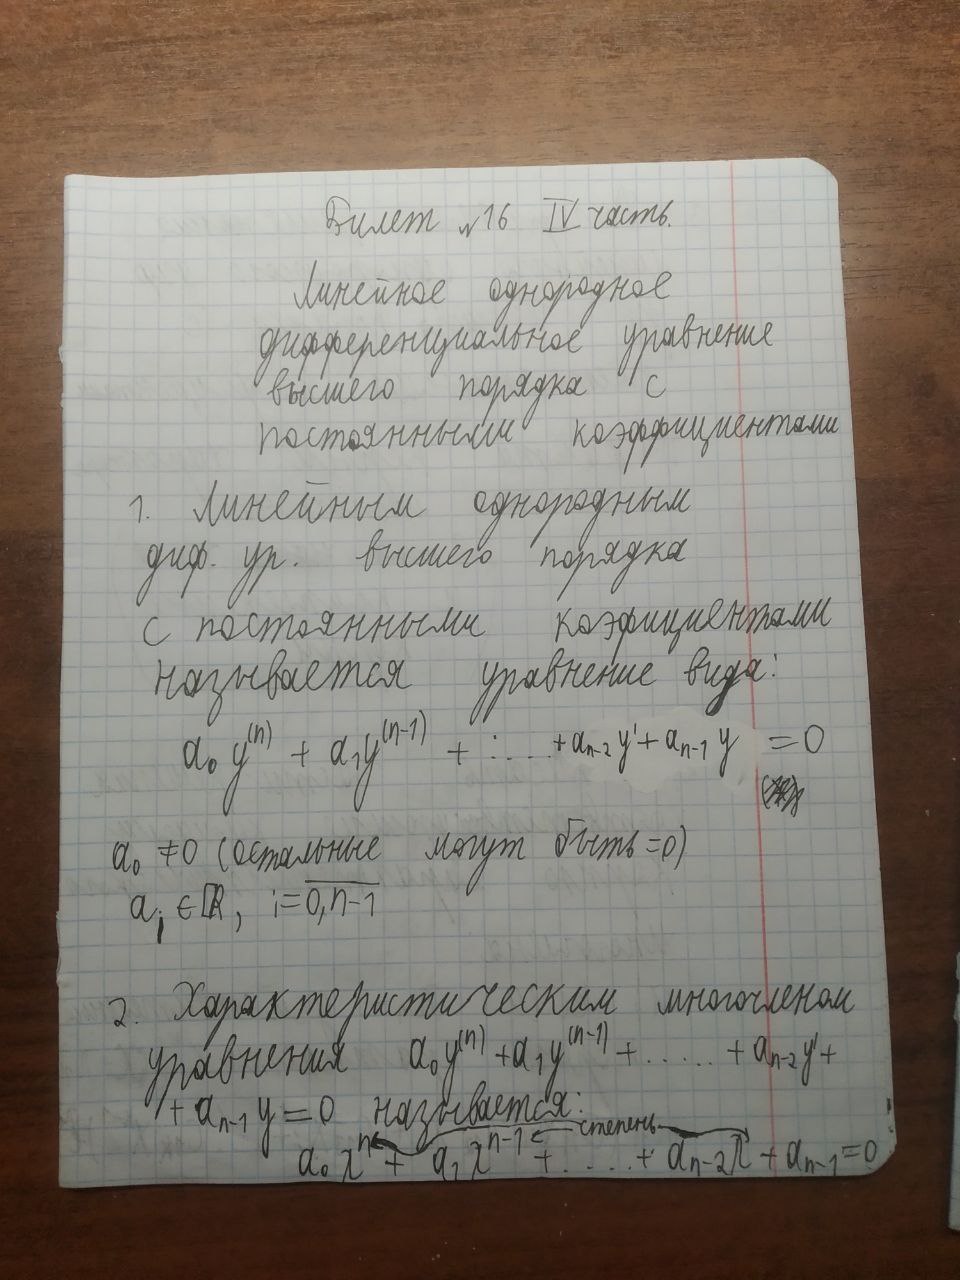 Билет №16 IV часть.
Линейное однородное
дифференциальное уравнение
высшего порядка с
постоянными коэффициентами
1. Линейным однородным
диф. ур. высшего порядка
с постоянными коэфициентами
называется уравнение вида:
a₀y⁽ⁿ⁾ + a₁y⁽ⁿ⁻¹⁾ + ..... + aₙ₋₂y' + aₙ₋₁y = 0
a₀ ≠ 0 (остальные могут быть = 0)
aᵢ ∈ ℝ, i = 0,n-1
2. Характеристическим многочленом
уравнения a₀y⁽ⁿ⁾ + a₁y⁽ⁿ⁻¹⁾ + ..... + aₙ₋₂y' +
+ aₙ₋₁y = 0 называется:
степень
a₀λⁿ + a₁λⁿ⁻¹ + ..... + aₙ₋₂λ + aₙ₋₁ = 0